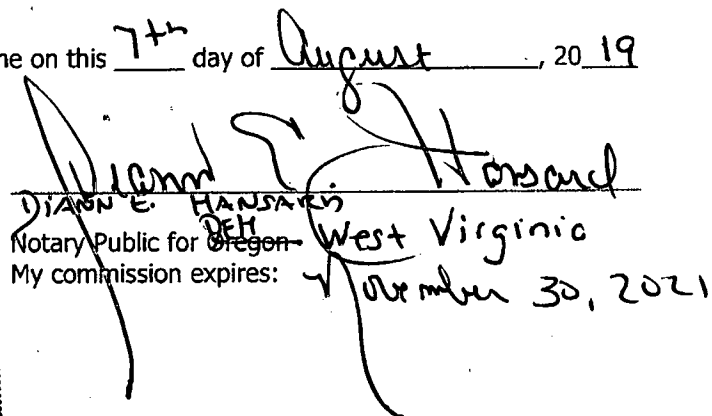 me on this 7th day of August, 20 19
Diann E Hansard
DIANN E. HANSARD
DEH
Notary Public for Oregon West Virginia
My commission expires: November 30, 2021